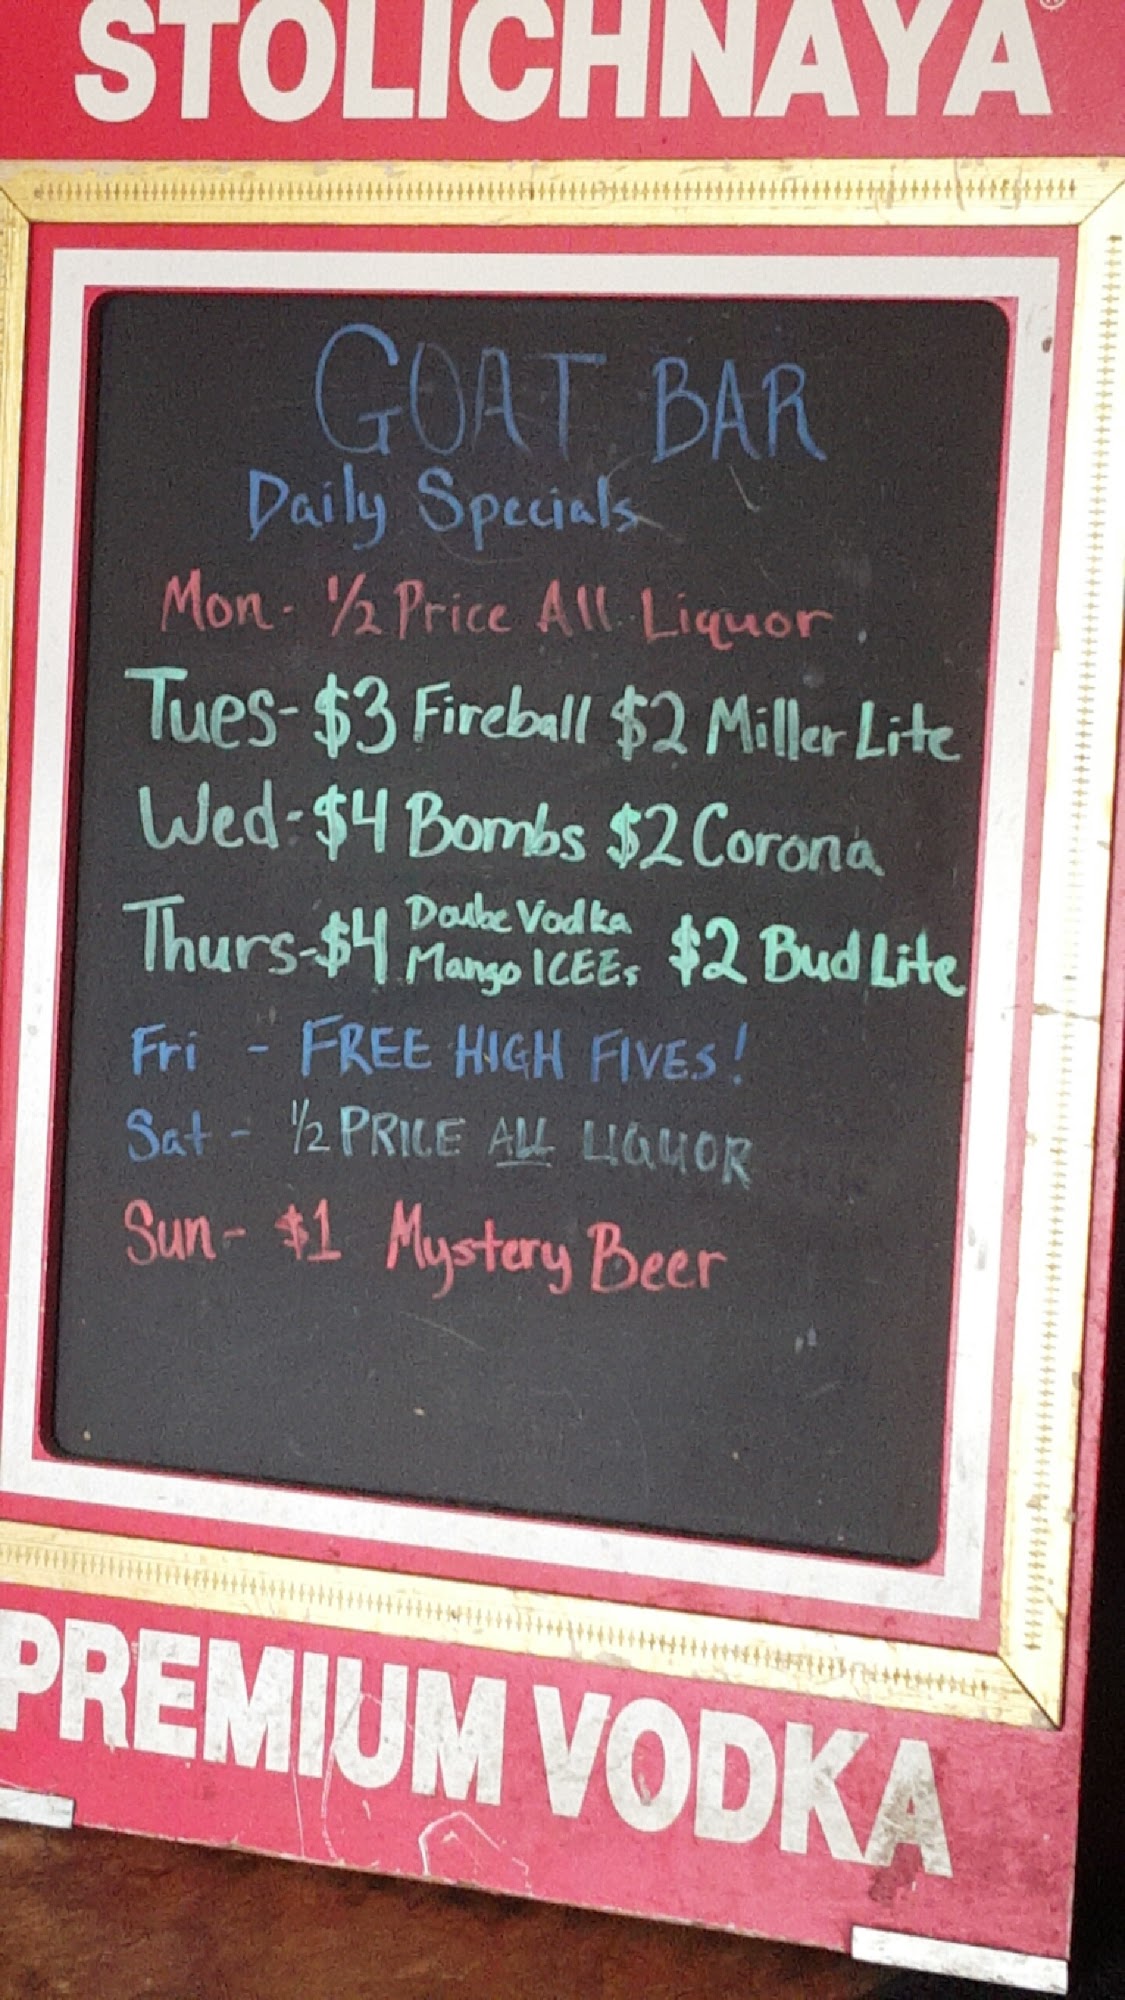 STOLICHNAYA®
GOAT BAR
Daily Specials
Mon - 1/2 Price All Liquor
Tues - $3 Fireball $2 Miller Lite
Wed - $4 Bombs $2 Corona
Thurs - $4 Doube Vodka Mango ICEEs $2 Bud Lite
Fri - FREE HIGH FIVES!
Sat - 1/2 PRICE ALL LIQUOR
Sun - $1 Mystery Beer
PREMIUM VODKA